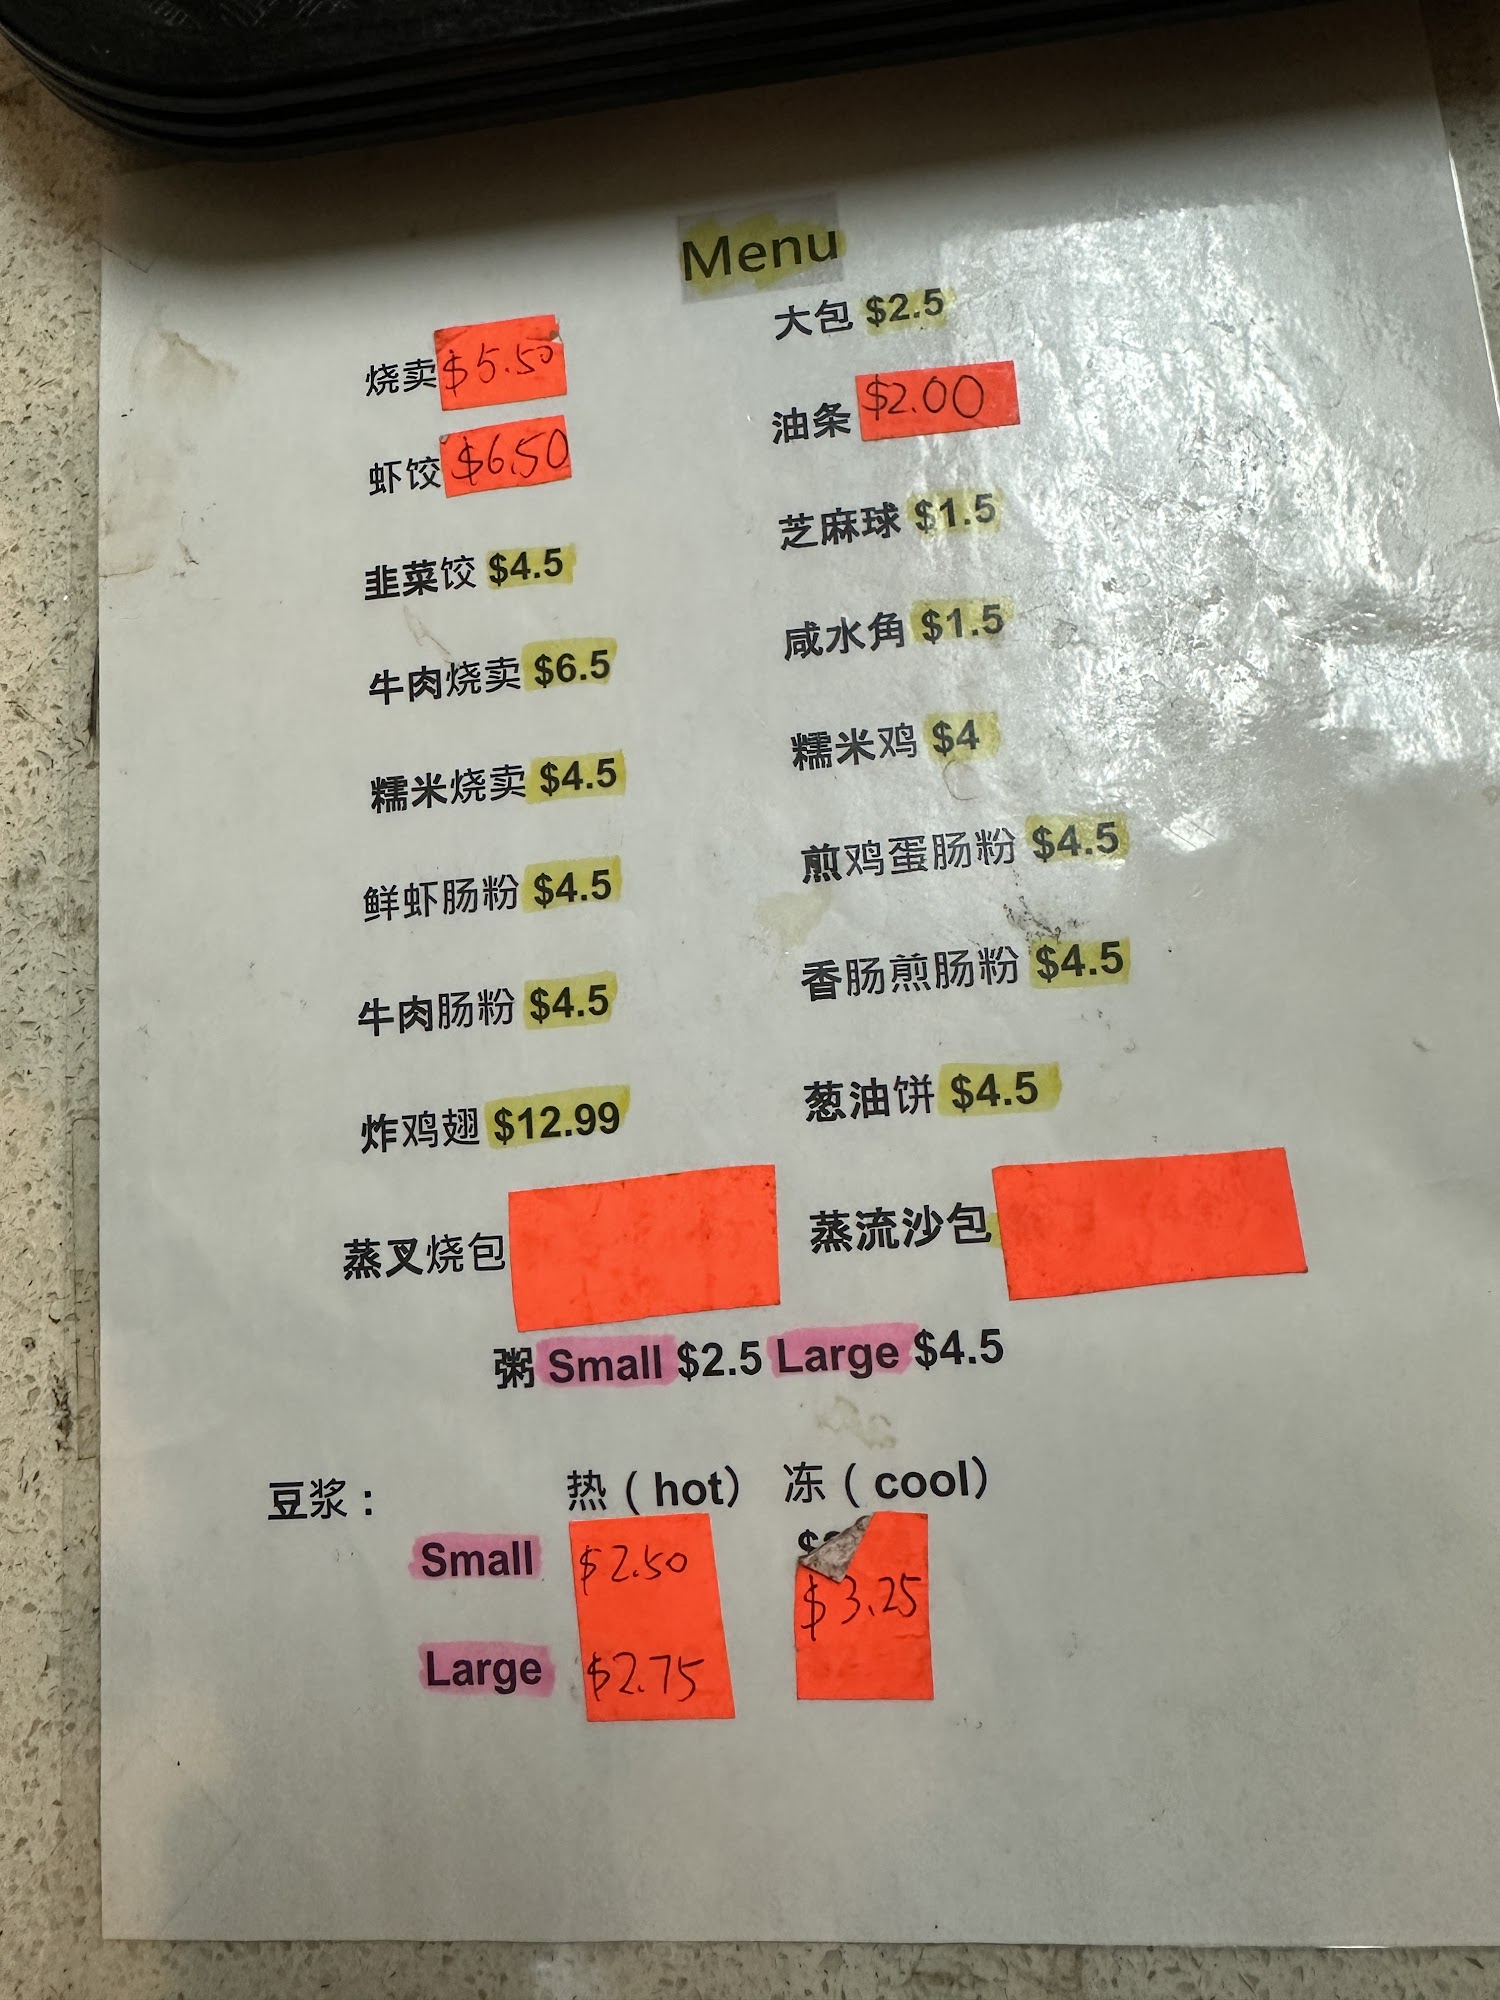 Menu
大包 $2.5
烧卖 $5.50
油条 $2.00
虾饺 $6.50
芝麻球 $1.5
韭菜饺 $4.5
咸水角 $1.5
牛肉烧卖 $6.5
糯米鸡 $4
糯米烧卖 $4.5
煎鸡蛋肠粉 $4.5
鲜虾肠粉 $4.5
香肠煎肠粉 $4.5
牛肉肠粉 $4.5
葱油饼 $4.5
炸鸡翅 $12.99
蒸流沙包
蒸叉烧包
粥 Small $2.5 Large $4.5
豆浆： 热（hot） 冻（cool）
Small $2.50 $3.25
Large $2.75